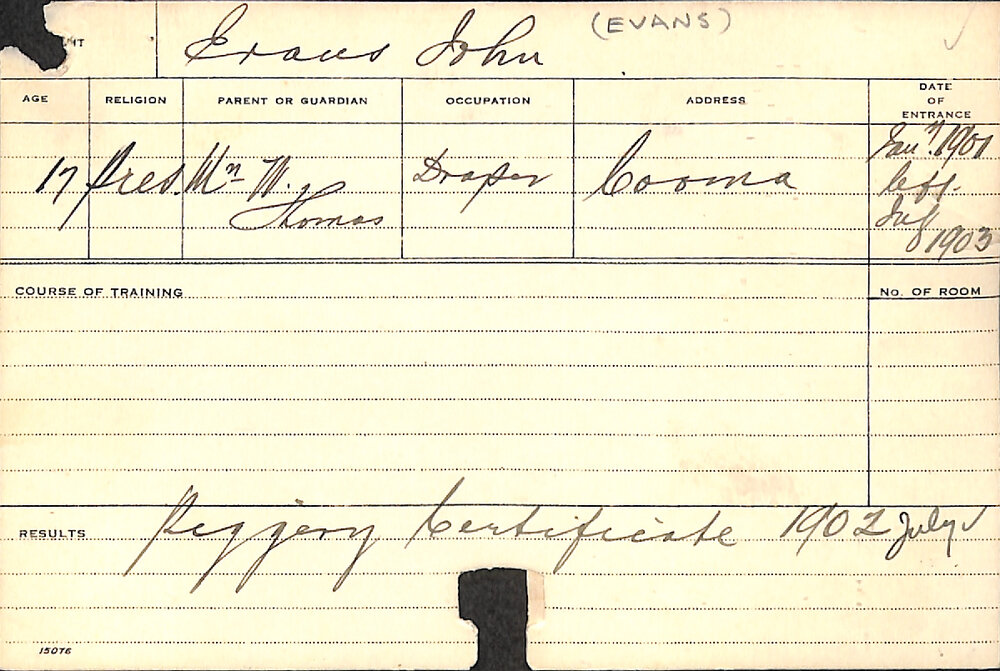 NT Evans John (EVANS)
AGE RELIGION PARENT OR GUARDIAN OCCUPATION ADDRESS DATE OF ENTRANCE
17 Pres. Mr W. Thomas Draper Cooma Jany. 1901
left
July 1903
COURSE OF TRAINING No. OF ROOM
RESULTS Piggery Certificate 1902 July
15076